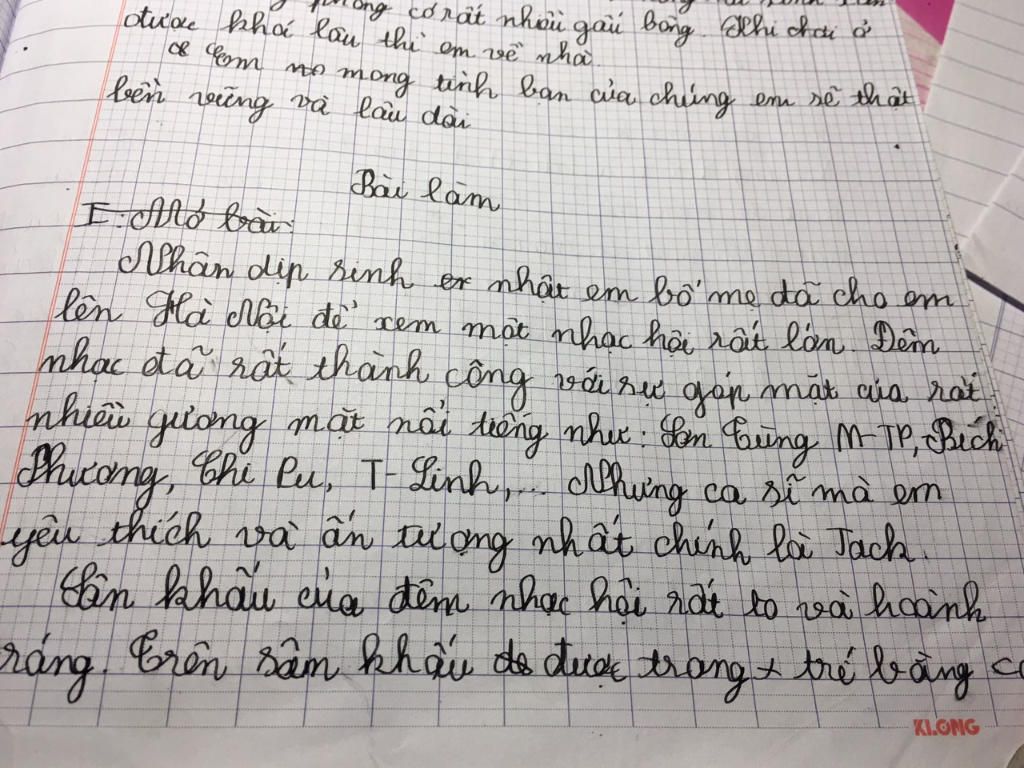 phòng có rất nhiều gấu bông. Khi chơi ở
được khá lâu thì em về nhà.
Em mo mong tình bạn của chúng em sẽ thật
bền vững và lâu dài
Bài làm
I. Mở bài:
Nhân dịp sinh nhật em bố mẹ đã cho em
lên Hà Nội để xem một nhạc hội rất lớn. Đêm
nhạc đã rất thành công với sự góp mặt của rất
nhiều gương mặt nổi tiếng như: Sơn Tùng M-TP, Bích
Phương, Chi Pu, T-Linh,... Nhưng ca sĩ mà em
yêu thích và ấn tượng nhất chính là Jack.
Sân khấu của đêm nhạc hội rất to và hoành
ráng. Trên sâm khấu được trang trí bằng
KLONG